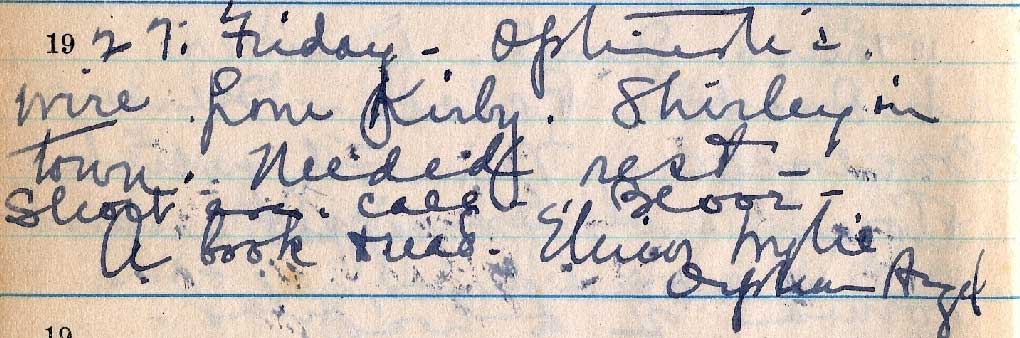 1927. Friday - Optimistic.
wire from Kirby. Shirley in
town. Needed rest -
Short call - Bloor -
A book read. Elinor Wylie
Orphan Angel
19